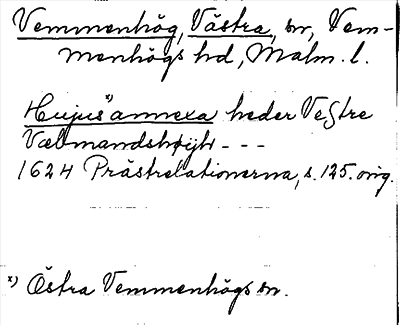 Vemmenhög, Västra, sn, Vem-
menhögs hd, Malm. l.
Hujus x) annexa heder Veʃtre
Vælmandshøyʀ - - -
1624 Prästrelationerna, s. 125. orig.
x) Östra Vemmenhögs sn.